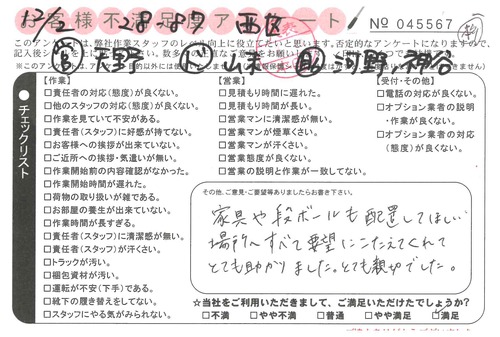 12/2 28-89 西区
お客様不満足度アンケート No 045567
㊕天野 山本 河野 神谷
チェックリスト
【作業】
□責任者の対応(態度)が良くない。
□他のスタッフの対応(態度)が良くない。
□作業を見ていて不安がある。
□責任者(スタッフ)に好感が持てない。
□お客様への挨拶が出来ていない。
□ご近所への挨拶・気遣いが無い。
□作業開始前の内容確認がなかった。
□作業開始時間が遅れた。
□荷物の取り扱いが雑である。
□お部屋の養生が出来ていない。
□作業時間が長すぎる。
□責任者(スタッフ)に清潔感が無い。
□責任者(スタッフ)が汗くさい。
□トラックが汚い。
□梱包資材が汚い。
□運転が不安(下手)である。
□靴下の履き替えをしてない。
□スタッフにやる気がみられない。
【営業】
□見積もり時間に遅れた。
□見積もり時間が長い。
□営業マンに清潔感が無い。
□営業マンが煙草くさい。
□営業マンが汗くさい。
□営業態度が良くない。
□営業の説明と作業が一致してない。
【受付・その他】
□電話の対応が良くない。
□オプション業者の説明・作業が良くない。
□オプション業者の対応(態度)が良くない。
その他、ご意見・ご要望等ありましたらお書き下さい。
家具や段ボールも配置してほしい
場所へすべて要望にこたえてくれて
とても助かりました。とても親切でした。
☆当社をご利用いただきまして、ご満足いただけたでしょうか?
□不満 □やや不満 □普通 □やや満足 □満足